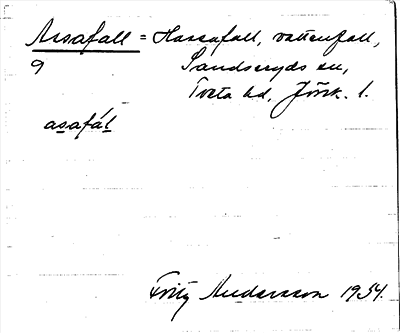 Assafall = Hassafall, vattenfall,
9 Sandseryds sn,
Tveta hd, Jönk. l.
asafál
Fritz Andersson 1934.